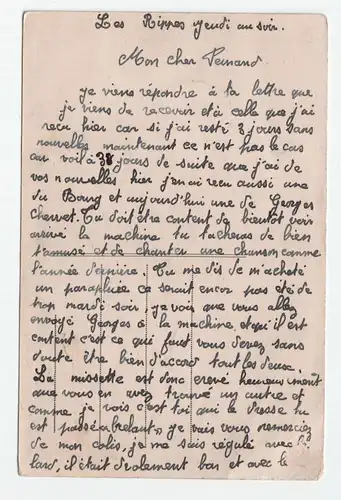 Les Rippes jeudi au soir.
Mon cher Fernand.
je viens répondre à ta lettre que
je viens de recevoir et à celle que j'ai
recu hier car si j'ai resté 3 jours sans
nouvelles maintenant ce n'est pas le cas
car voilà 3 jours de suite que j'ai de
vos nouvelles hier j'en ai recu aussi une
du Bourg et aujourd'hui une de Georges
Chenvet. Tu doit être content de bientot voir
arrivé la machine tu tacheras de bien
t'amusé et de chanter une chanson comme
l'année dernière. Tu me dis de m'acheté
un parapluie ca serait encor pas été de
trop mardi soir. je vois que vous allez
envoyé Georges à la machine et qu'il est
content c'est ce qui faut vous devez sans
doute être bien d'accord tout les deux.
La musette est donc crevé heureusement
que vous en avez trouvé un autre et
comme je vois c'est toi qui le dresse tu
est passé "brelant" je vais vous remerciez
de mon colis, je me suis régulé avec le
lard, il était drolement bon et avec le